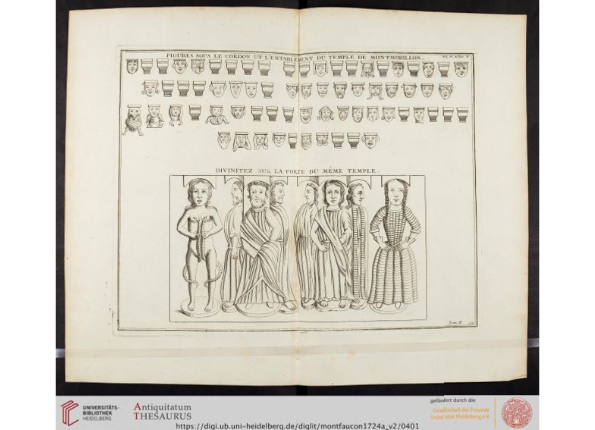 FIGURES SOUS LE CORDON ET L'ENTABLEMENT DU TEMPLE DE MONTMORILLON.
DIVINITEZ SUR LA PORTE DU MÊME TEMPLE.
Tom. II
UNIVERSITÄTS-
BIBLIOTHEK
HEIDELBERG
Antiquitatum
THESAURUS
gefördert durch die
Gesellschaft der Freunde
Universität Heidelberg e.V.
https://digi.ub.uni-heidelberg.de/diglit/montfaucon1724a_v2/0401